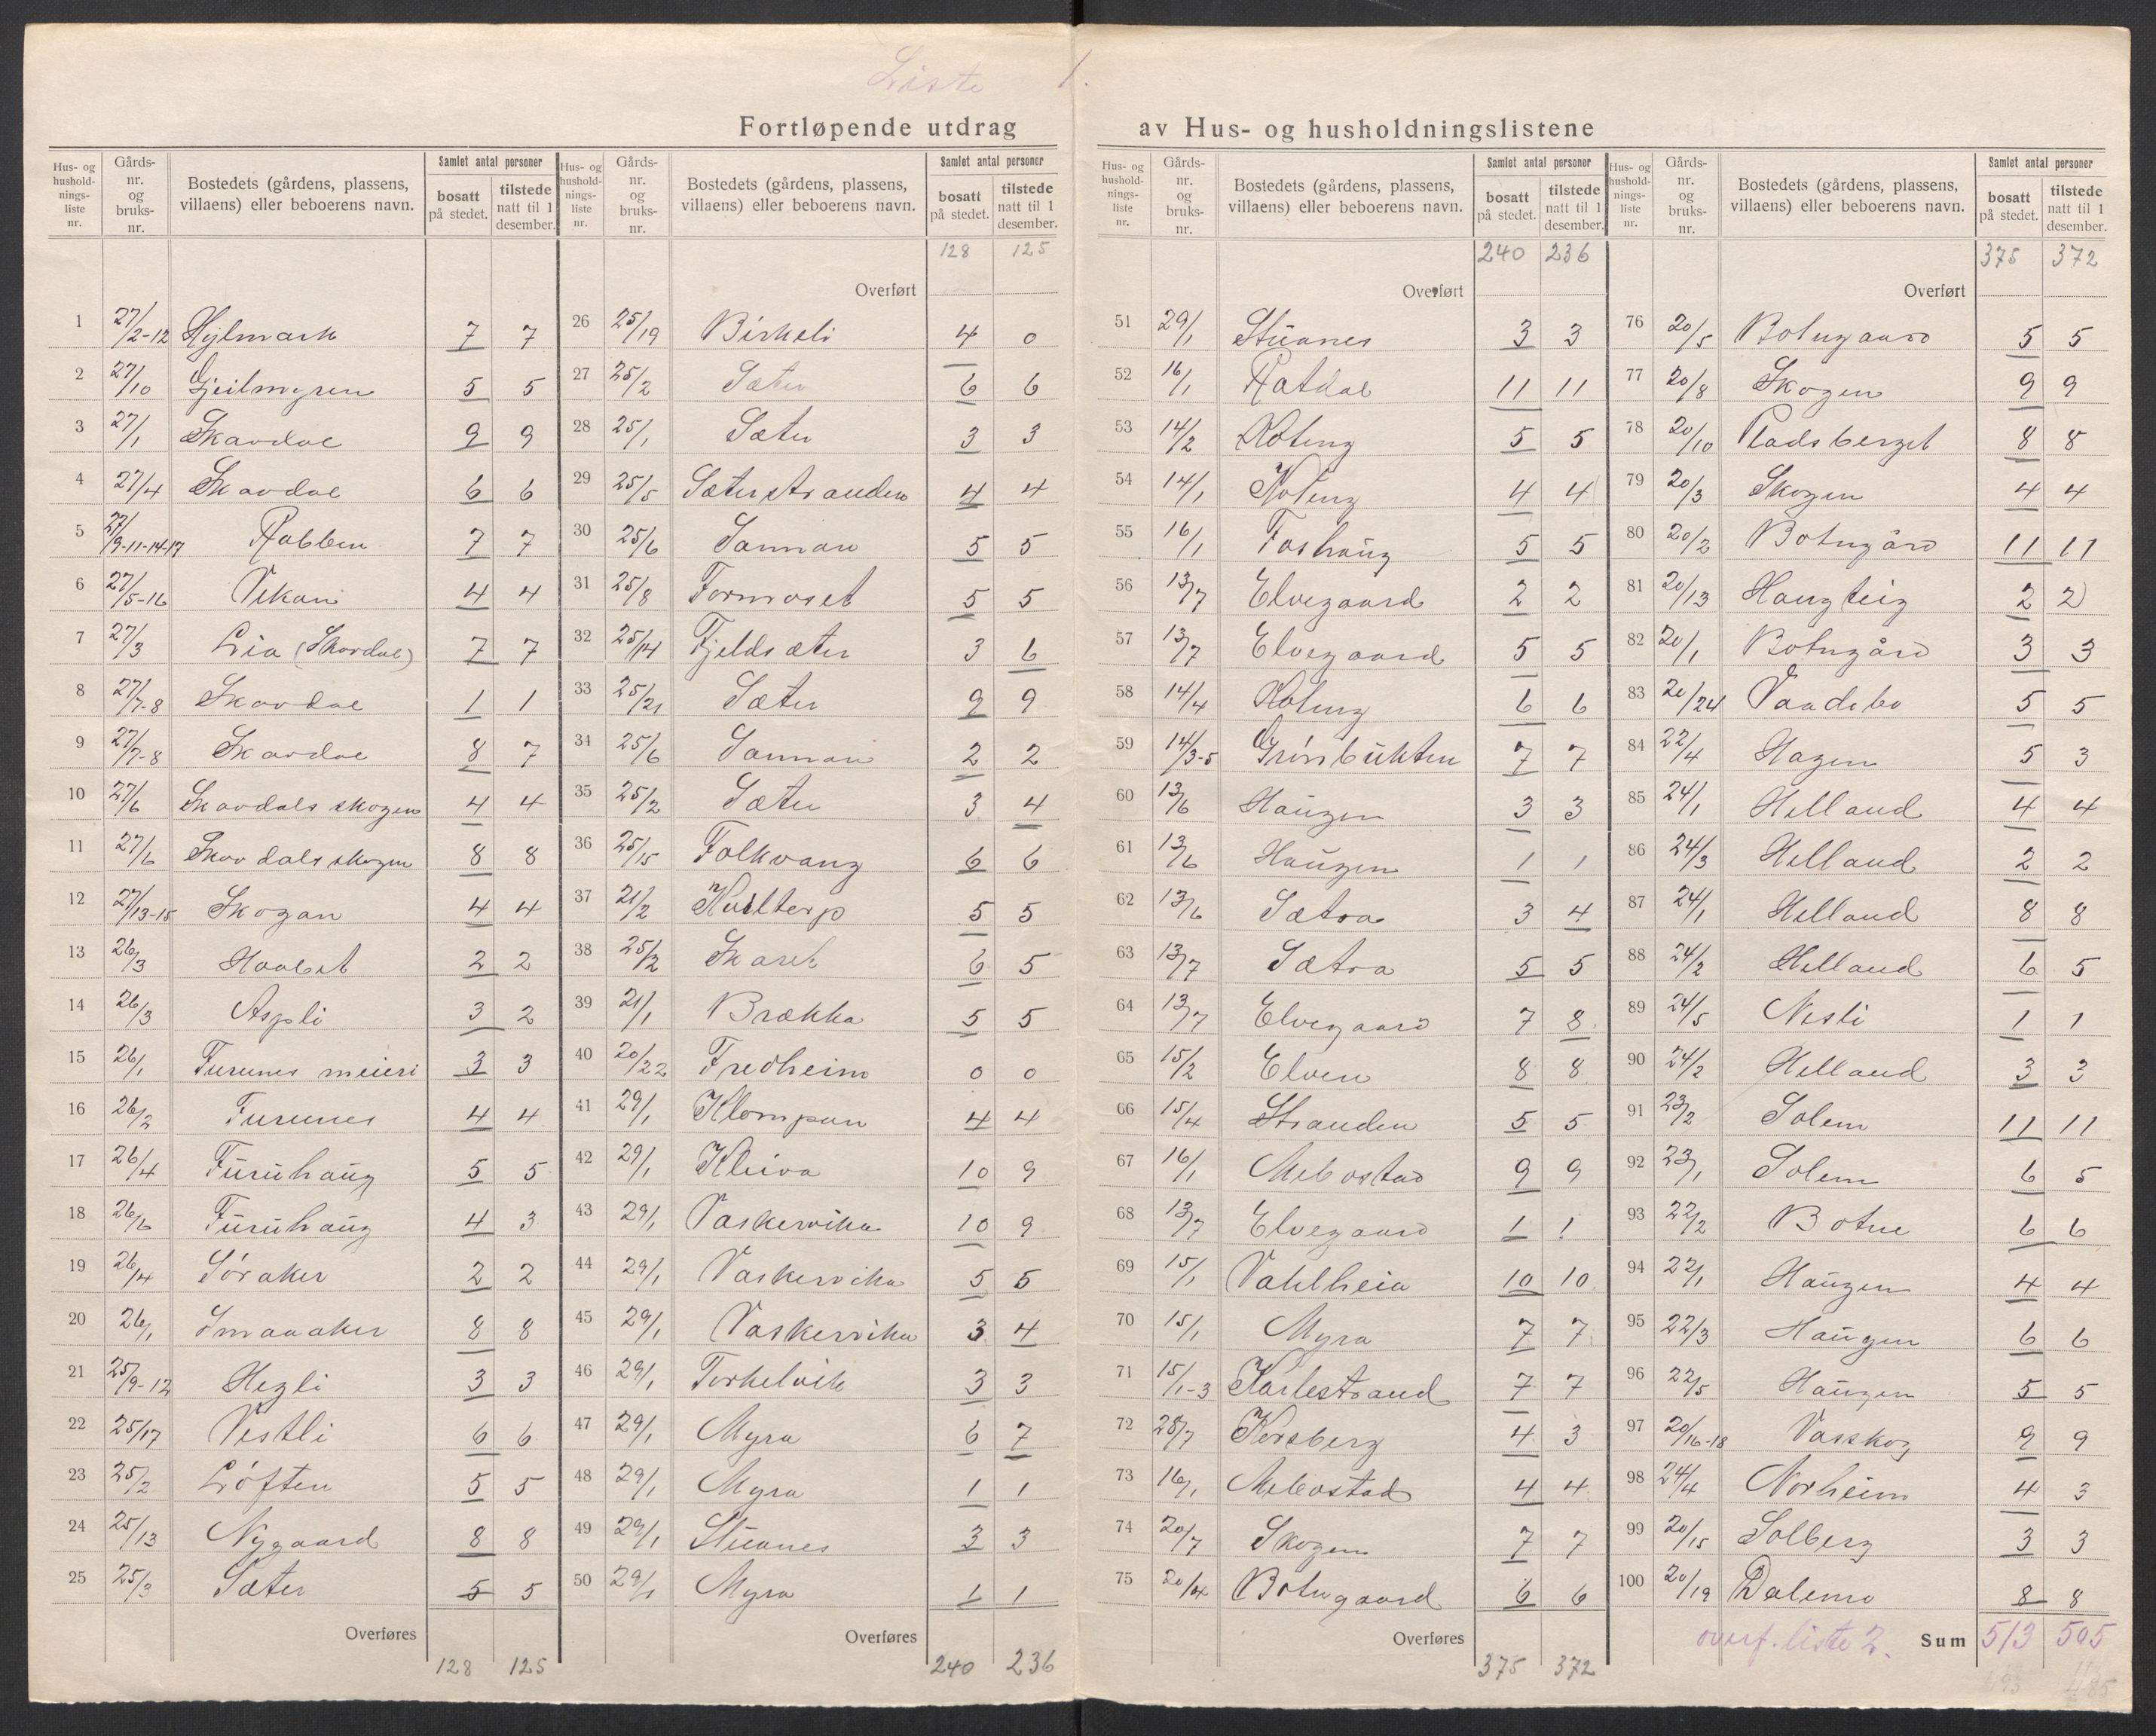 Liste 1.
Fortløpende utdrag av Hus- og husholdningslistene
Hus- og husholdnings-liste nr. Gårds-nr. og bruks-nr. Bostedets (gårdens, plassens, villaens) eller beboerens navn. Samlet antal personer bosatt på stedet. tilstede natt til 1 desember.
1 27/2-12 Hylmark 7 7
2 27/10 Gjeilmyren 5 5
3 27/1 Skavdal 9 9
4 27/4 Skavdal 6 6
5 27/9-11-14-17 Rabben 7 7
6 27/5-16 Vikan 4 4
7 27/3 Lia (Skavdal) 7 7
8 27/7-8 Skavdal 1 1
9 27/7-8 Skavdal 8 7
10 27/6 Skavdals skogen 4 4
11 27/6 Skavdals skogen 8 8
12 27/13-15 Skogan 4 4
13 26/3 Haabet 2 2
14 26/3 Aspli 3 2
15 26/1 Furunes meieri 3 3
16 26/2 Furunes 4 4
17 26/4 Furuhaug 5 5
18 26/6 Furuhaug 4 3
19 26/4 Söraker 2 2
20 26/1 Smaaaker 8 8
21 25/9-12 Hegli 3 3
22 25/17 Vestli 6 6
23 25/2 Löften 5 5
24 25/13 Nygaard 8 8
25 25/3 Sæter 5 5
Overføres 128 125
Hus- og husholdnings-liste nr. Gårds-nr. og bruks-nr. Bostedets (gårdens, plassens, villaens) eller beboerens navn. Samlet antal personer bosatt på stedet. tilstede natt til 1 desember.
128 125
Overført
26 25/19 Birkeli 4 0
27 25/2 Sæter 6 6
28 25/1 Sæter 3 3
29 25/5 Sæterstranden 4 4
30 25/6 Sannan 5 5
31 25/8 Formoset 5 5
32 25/14 Fjeldsæter 3 6
33 25/21 Sæter 9 9
34 25/6 Sannan 2 2
35 25/2 Sæter 3 4
36 25/15 Folkvang 6 6
37 21/2 5 5
38 25/2 Skaret 6 5
39 21/1 Brækka 5 5
40 20/22 Fredheim 0 0
41 29/1 Klompan 4 4
42 29/1 Kleiva 10 9
43 29/1 Vaskervika 10 9
44 29/1 Vaskervika 5 5
45 29/1 Vaskervika 3 4
46 29/1 Torkelvik 3 3
47 29/1 Myra 6 7
48 29/1 Myra 1 1
49 29/1 Stuanes 3 3
50 29/1 Myra 1 1
Overføres 240 236
Hus- og husholdnings-liste nr. Gårds-nr. og bruks-nr. Bostedets (gårdens, plassens, villaens) eller beboerens navn. Samlet antal personer bosatt på stedet. tilstede natt til 1 desember.
240 236
Overført
51 29/1 Stuanes 3 3
52 16/1 Ratdal 11 11
53 14/2 Koteng 5 5
54 14/1 Koteng 4 4
55 16/1 Foshaug 5 5
56 13/7 Elvegaard 2 2
57 13/7 Elvegaard 5 5
58 14/4 Koteng 6 6
59 14/3-5 Grönbukten 7 7
60 13/6 Haugen 3 3
61 13/6 Haugen 1 1
62 13/6 Sætra 3 4
63 13/7 Sætra 5 5
64 13/7 Elvegaard 7 8
65 15/2 Elven 8 8
66 15/4 Stranden 5 5
67 16/1 Mebostad 9 9
68 13/7 Elvegaard 1 1
69 15/1 Vahlheia 10 10
70 15/1 Myra 7 7
71 15/1-3 Karlestrand 7 7
72 28/7 Korsberg 4 3
73 16/1 Mebostad 4 4
74 20/7 Skogen 7 7
75 20/4 Botngaard 6 6
Overføres 375 372
Hus- og husholdnings-liste nr. Gårds-nr. og bruks-nr. Bostedets (gårdens, plassens, villaens) eller beboerens navn. Samlet antal personer bosatt på stedet. tilstede natt til 1 desember.
375 372
Overført
76 20/5 Botngaard 5 5
77 20/8 Skogen 9 9
78 20/10 Pladsberget 8 8
79 20/3 Skogen 4 4
80 20/2 Botngård 11 11
81 20/13 Haugteig 2 2
82 20/1 Botngård 3 3
83 20/24 5 5
84 22/4 Hagen 5 3
85 24/1 Helland 4 4
86 24/3 Helland 2 2
87 24/1 Helland 8 8
88 24/2 Helland 6 5
89 24/5 Nesli 1 1
90 24/2 Helland 3 3
91 23/2 Solem 11 11
92 23/1 Solem 6 5
93 22/2 Botne 6 6
94 22/1 Haugen 4 4
95 22/3 Haugen 6 6
96 22/5 Haugen 5 5
97 20/16-18 Vasskog 9 9
98 24/4 Norheim 4 3
99 20/15 Solberg 3 3
100 20/19 Dalemo 8 8
overf. liste 2. Sum 513 505